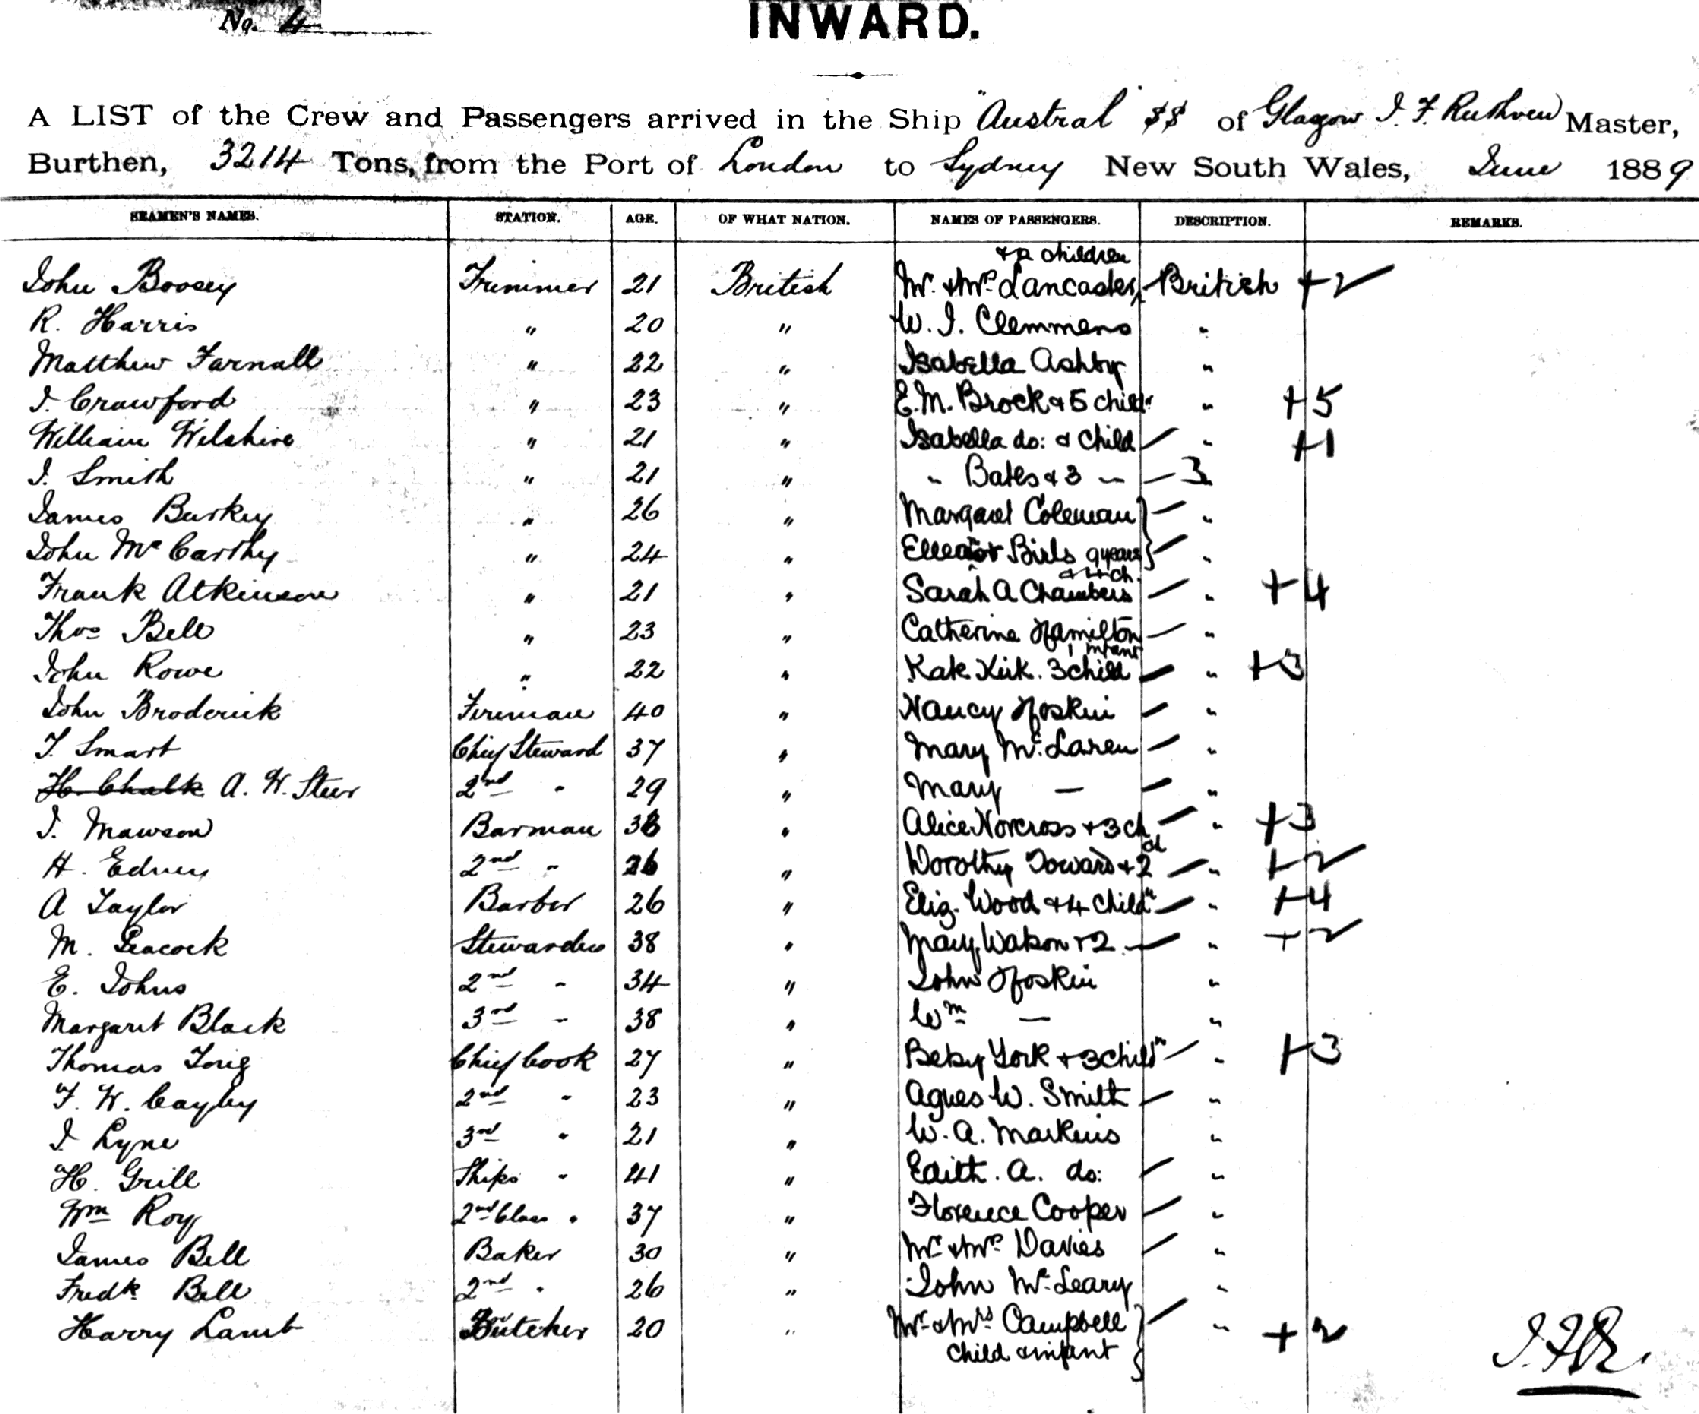 No. 4
INWARD.
A LIST of the Crew and Passengers arrived in the Ship "Austral" SS of Glasgow J. F. Ruthven Master,
Burthen, 3214 Tons, from the Port of London to Sydney New South Wales, June 1889
SEAMEN'S NAMES. STATION. AGE. OF WHAT NATION. NAMES OF PASSENGERS. DESCRIPTION. REMARKS.
& 2 children
John Boosey Trimmer 21 British Mr. & Mrs Lancaster British +2
R. Harris " 20 " W. J. Clemmens "
Matthew Farnall " 22 " Isabella Ashby "
J. Crawford " 23 " E. M. Brock & 5 childn " +5
William Wilshire " 21 " Isabella do: & child — " +1
J. Smith " 21 " " Bates & 3 " — 3
James Burkey " 26 " Margaret Coleman — "
John McCarthy " 24 " 9 years — "
& 4 ch.
Frank Atkinson " 21 " Sarah A Chambers — " +4
Thos Bell " 23 " Catherine Hamilton — "
1 infant
John Rowe " 22 " Kate Kirk. 3 child — " +3
John Broderick Fireman 40 " Nancy Hoskin — "
T. Smart Chief Steward 37 " Mary McLaren — "
H. Chalk A. W. Steer 2nd " 29 " Mary — — "
J. Mawson Barman 38 " Alice Norcross + 3 ch — " +3
H. Edney 2nd " 26 " Dorothy Toward + 2 ch — " +2
A Taylor Barber 26 " Eliz. Wood & 4 childn — " +4
M. Peacock Stewardess 38 " Mary Watson + 2 — " +2
E. Johns 2nd " 34 " John Hoskin "
Margaret Black 3rd " 38 " Wm — "
Thomas Tong Chief Cook 27 " Betsy York + 3 childn — " +3
F. W. Cayley 2nd " 23 " Agnes W. Smith — "
J Lyne 3rd " 21 " W. A. Markins "
H. Grill Ships " 41 " Edith. A. do: — "
Wm Roy 2nd Class " 37 " Florence Cooper — "
James Bell Baker 30 " Mr & Mrs Davies — "
Fredk Bell 2nd " 26 " John McLeary "
Harry Lamb Butcher 20 " Mr. & Mrs Campbell — " +2
child & infant
J.F.R.